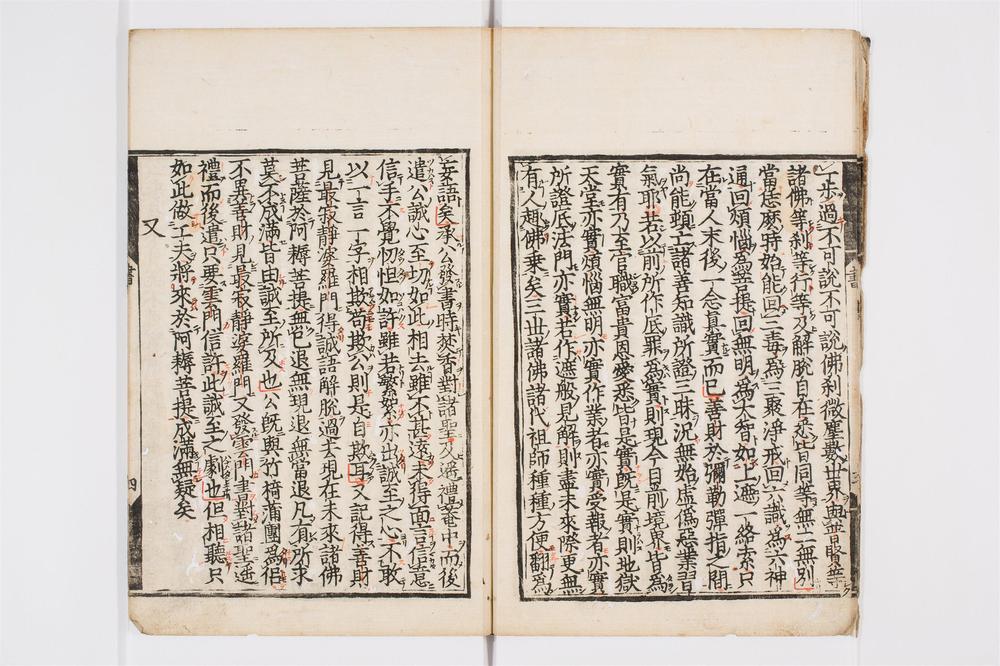 一步過不可說不可說佛刹微塵數世界與普賢等
諸佛等刹等行等及解脫自在悉皆同等無二無別
當恁麽時始能回三毒爲三聚淨戒回六識爲六神
通回煩惱爲菩提回無明爲大智如上遮一絡索只
在當人末後一念真實而已善財於彌勒彈指之間
尚能頓亡諸善知識所證三昧況無始虛僞惡業習
氣耶若以前所作底罪爲實則現今目前境界皆爲
實有乃至官職富貴恩愛悉皆是實既是實則地獄
天堂亦實煩惱無明亦實作業者亦實受報者亦實
所證底法門亦實若作遮般見解則盡未來際更無
有人趣佛乗矣三世諸佛諸代祖師種種方便翻爲
妄語矣承公發書時焚香對諸聖及遥禮菴中而後
遣公誠心至切如此相去雖不甚遠未得面言信意
信手不覺忉怛如許雖若繁絮亦出誠至之心不敢
以一言一字相欺苟欺公則是自欺耳又記得善財
見最寂靜婆羅門得誠語解脫過去現在未來諸佛
菩薩於阿耨菩提無已退無現退無當退凡有所求
莫不成滿皆由誠至所及也公既與竹椅蒲團爲侶
不異善財見最寂靜婆羅門又發雲門書對諸聖遥
禮而後遣只要雲門信許此誠至之劇也但相聽只
如此做工夫將來於阿耨菩提成滿無疑矣
又
書
四
書